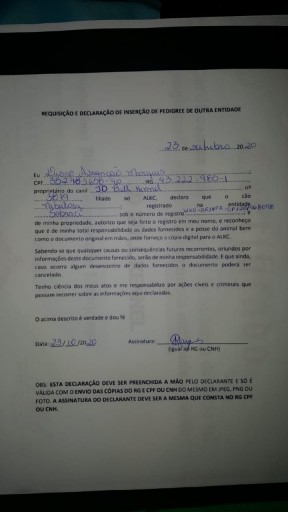 REQUISIÇÃO E DECLARAÇÃO DE INSERÇÃO DE PEDIGREE DE OUTRA ENTIDADE
23 DE outubro 2020
Eu
CPF RG 43.222.960-1
proprietário do canil JD Bulls Kennel nº
filiado ao ALKC, declaro que o cão
registrado na entidade
Sobraci sob o número de registro e
de minha propriedade, autorizo que seja feito o registro em meu nome, e reconheço
que é de minha total responsabilidade os dados fornecidos e a posse do animal bem
como o documento original em mãos, onde forneço a cópia digital para o ALKC.
Sabendo se que quaisquer causas ou consequências futuras recorrentes, oriundos por
informações deste documento fornecido, serão de minha responsabilidade. E que ainda,
caso ocorra algum desencontro de dados fornecidos o documento poderá ser
cancelado.
Tenho ciência dos meus atos e me responsabilizo por ações cíveis e criminais que
possam recorrer sobre as informações aqui declaradas.
O acima descrito é verdade e dou fé
Data: 23/10/2020 Assinatura:
(igual ao RG ou CNH)
OBS: ESTA DECLARAÇÃO DEVE SER PREENCHIDA A MÃO PELO DECLARANTE E SÓ É
VÁLIDA COM O ENVIO DAS CÓPIAS DO RG E CPF OU CNH DO MESMO EM JPEG, PNG OU
FOTO. A ASSINATURA DO DECLARANTE DEVE SER A MESMA QUE CONSTA NO RG CPF
OU CNH.